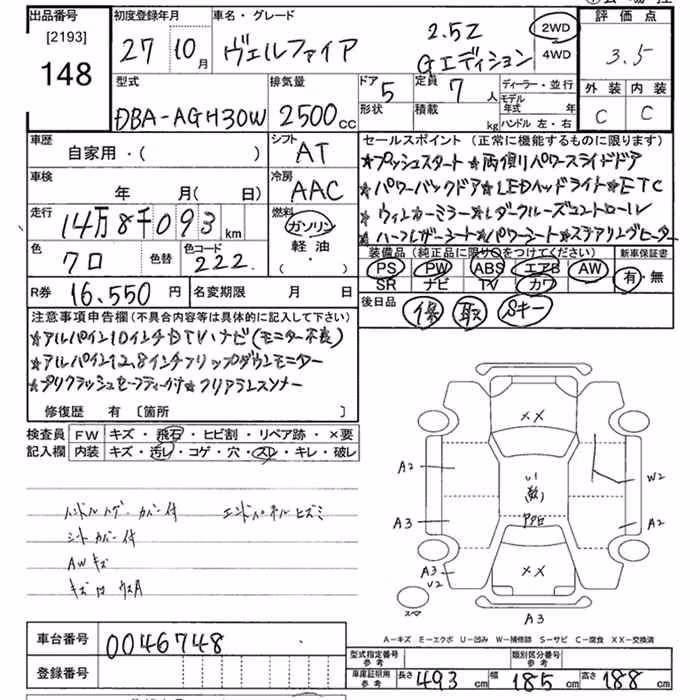 出品番号
[2193]
148
初度登録年月
27 10月
車名・グレード
ヴェルファイア
2.5Z
Gエディション
2WD
4WD
評価点
3.5
外装 内装
C C
型式
DBA-AGH30W
排気量
2500cc
ドア
5
定員
7人
形状
積載
kg
ディーラー・並行
モデル年式 年
ハンドル 左・右
車歴
自家用・( )
シフト
AT
車検
年 月(日)
冷房
AAC
走行
14万8千093km
燃料
ガソリン
軽油
・
色
クロ
色替
色コード
222
セールスポイント(正常に機能するものに限ります)
★プッシュスタート★両側リパワースライドドア
★パワーバックドア★LEDヘッドライト★ETC
★ウィンカーミラー★レダークルーズコントロール
★ハーフレザーシート★パワーシート★ステアリングヒーター
装備品(純正品に限り○をつけてください)
PS PW ABS エアB AW
SR ナビ TV カワ
新車保証書
有・無
R券
16,550円
名変期限 月 日
後日品
保 取 Sキー
注意事項申告欄(不具合内容等は具体的に記入して下さい)
★アルパイン10インチDTVナビ(モニター不良)
★アルパイン12.8インチフリップダウンモニター
★プリクラッシュセーフティー付★クリアランスソナー
修復歴 有 〔箇所 〕
検査員
記入欄
FW キズ・飛石・ヒビ割・リペア跡・×要
内装 キズ・汚レ・コゲ・穴・スレ・キレ・破レ
ハンドルカバー付
エンドパネルヒズミ
シートカバー付
AWキズ
××
A2
W2
A3
アタロ
A2
A3
V2
××
スマ
A3
A-キズ E-エクボ U-凹み W-補修跡 S-サビ C-腐食 XX-交換済
車台番号
0046748
登録番号
型式指定番号
参考
類別区分番号
参考
車庫証明用
参考
長さ 493cm
幅 185cm
高さ 188cm